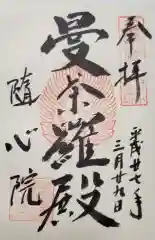 奉拝
平成廿七年
三月廿九日
曼荼羅殿
隨心院